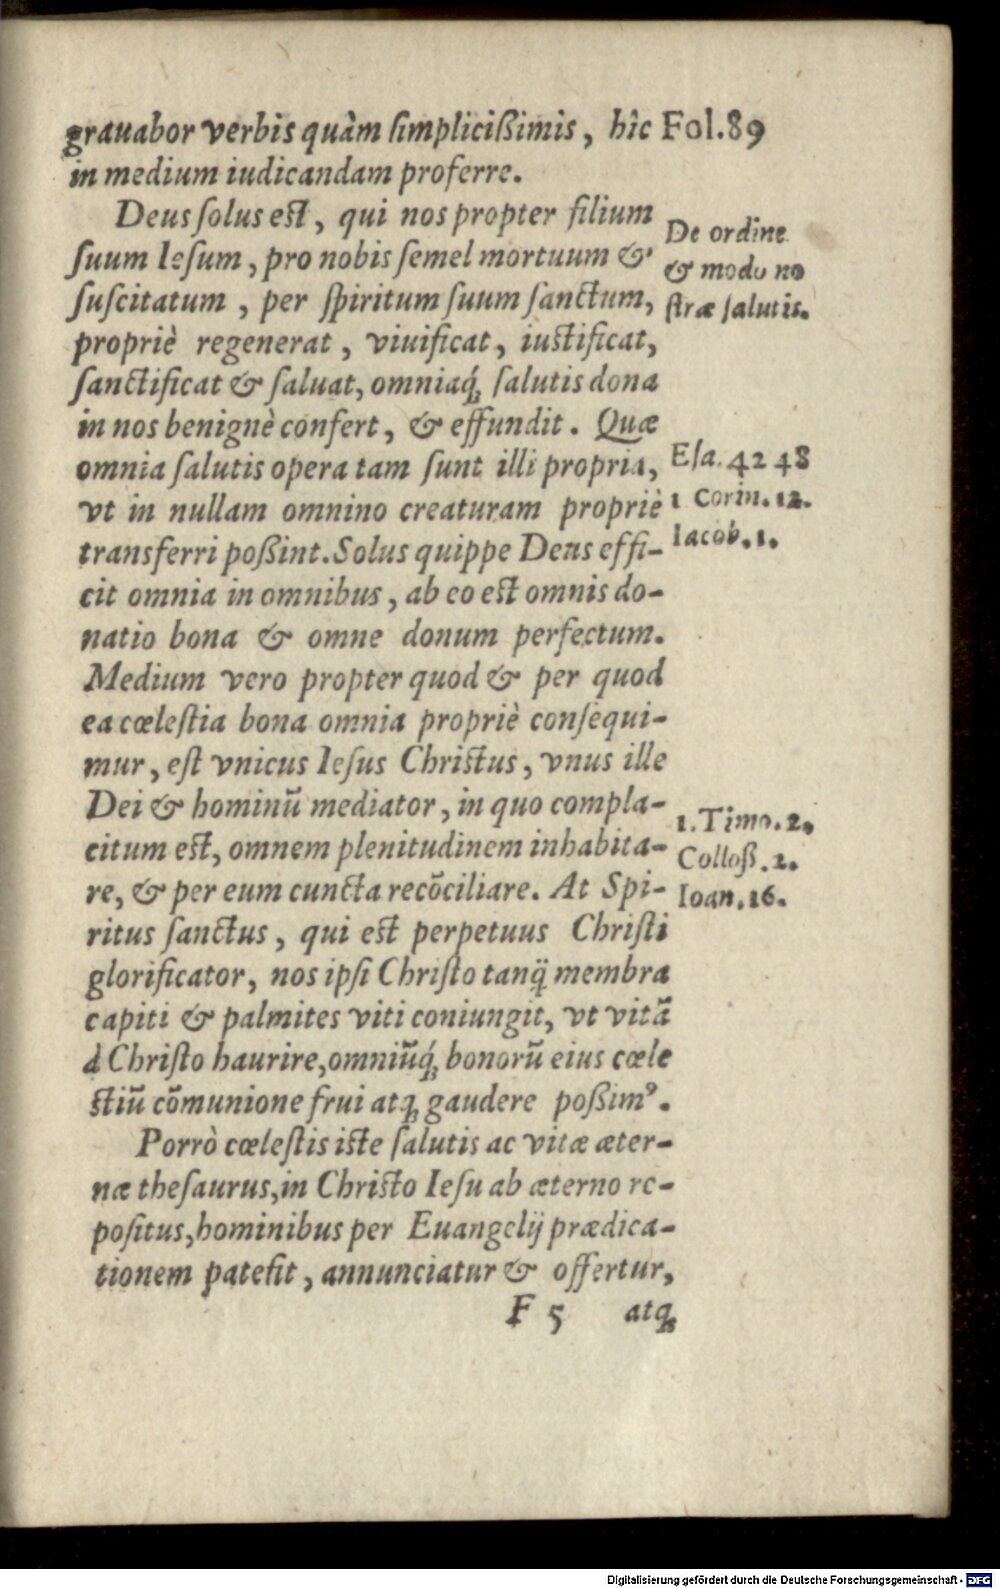 grauabor verbis quàm simplicißimis, hîc Fol.89
in medium iudicandam proferre.
Deus solus est, qui nos propter filium
suum Iesum, pro nobis semel mortuum &
suscitatum, per spiritum suum sanctum,
propriè regenerat, viuificat, iustificat,
sanctificat & saluat, omniaq́; salutis dona
in nos benignè confert, & effundit. Quæ
omnia salutis opera tam sunt illi propria,
vt in nullam omnino creaturam propriè
transferri poßint. Solus quippe Deus effi-
cit omnia in omnibus, ab eo est omnis do-
natio bona & omne donum perfectum.
Medium vero propter quod & per quod
ea cœlestia bona omnia propriè consequi-
mur, est vnicus Iesus Christus, vnus ille
Dei & hominũ mediator, in quo compla-
citum est, omnem plenitudinem inhabita-
re, & per eum cuncta recõciliare. At Spi-
ritus sanctus, qui est perpetuus Christi
glorificator, nos ipsi Christo tanq̃ membra
capiti & palmites viti coniungit, vt vitã
à Christo haurire, omniũq́; bonorũ eius cœle
stiũ cõmunione frui atq; gaudere poßimꝰ.
Porrò cœlestis iste salutis ac vitæ æter-
næ thesaurus, in Christo Iesu ab æterno re-
positus, hominibus per Euangelij prædica-
tionem patefit, annunciatur & offertur,
F 5 atq;
De ordine
& modo no
stræ salutis.
Esa. 42 48
1 Corin. 12.
Iacob. 1.
1. Timo. 2.
Colloß. 2.
Ioan. 16.
Digitalisierung gefördert durch die Deutsche Forschungsgemeinschaft - DFG